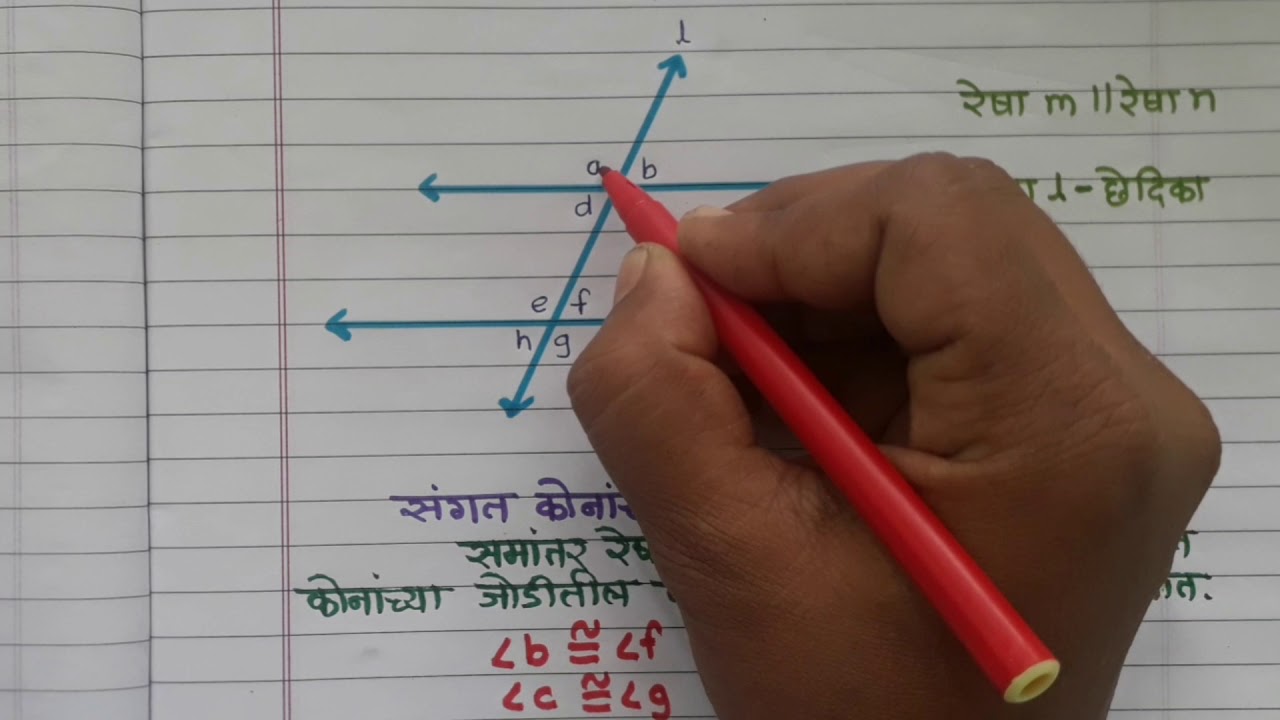 l
रेषा m || रेषा n
a b
l - छेदिका
d
e f
h g
संगत कोनां
समांतर
कोनांच्या जोडीतील
∠b ≅ ∠f
∠c ≅ ∠g